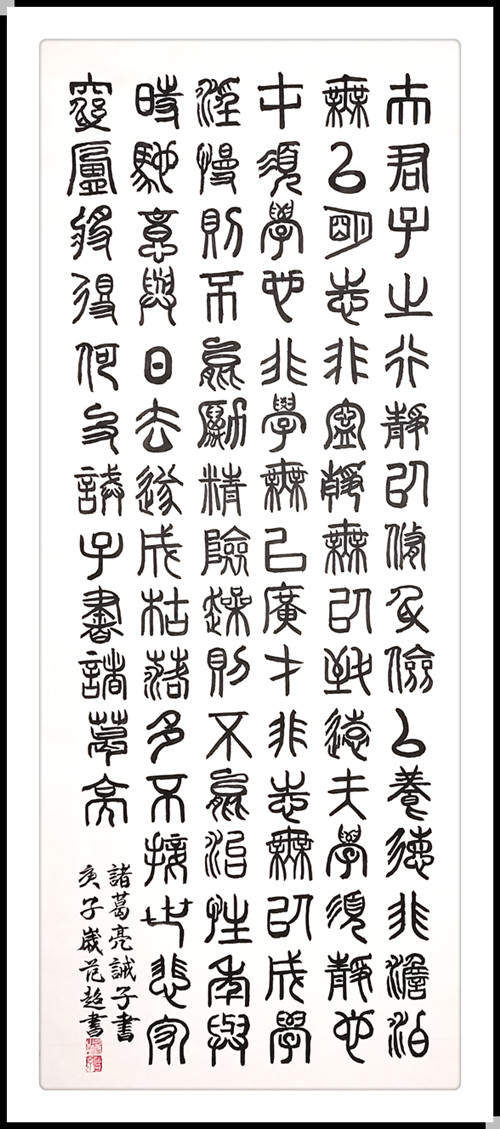 夫君子之行靜以修身儉以養德非澹泊
無以明志非寧靜無以致遠夫學須靜也
才須學也非學無以廣才非志無以成學
淫慢則不能勵精險躁則不能治性年與
時馳意與日去遂成枯落多不接世悲守
窮廬將復何及誡子書諸葛亮
諸葛亮誡子書
庚子歲范超書